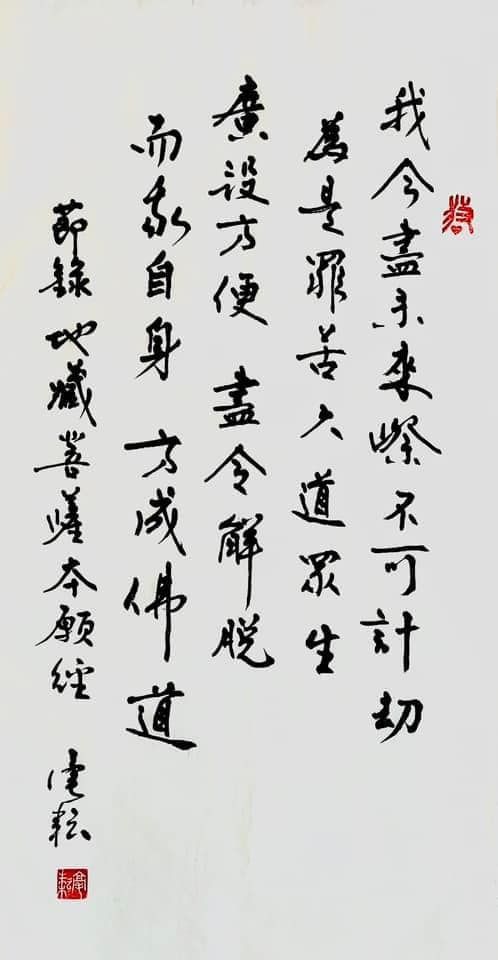 我今盡未來際不可計劫
為是罪苦六道眾生
廣設方便 盡令解脫
而我自身 方成佛道
節錄地藏菩薩本願經